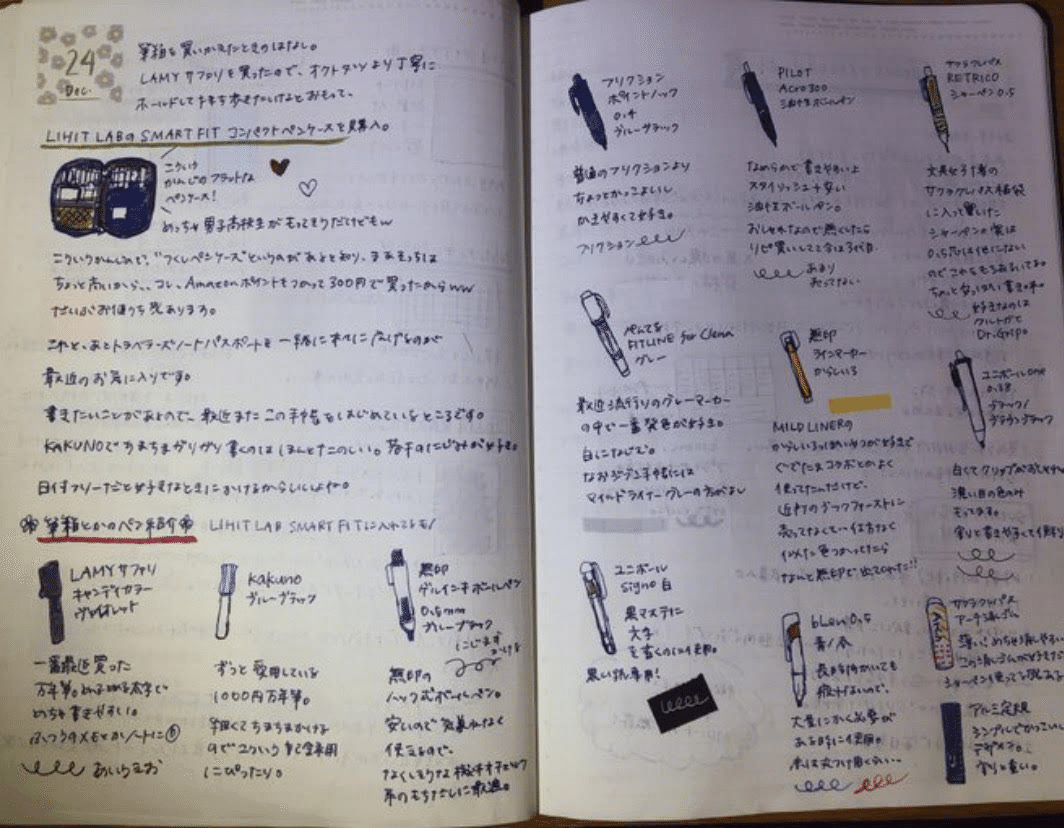 24
Dec.
筆箱を買いかえたときのはなし。
LAMYサファリを買ったので、オクトタツより丁寧に
ホールドして持ち歩きたいけなとおもって、
LIHIT LABのSMART FIT コンパクトペンケースを購入。
こういう
かんじのフラットな
ペンケース!
めっちゃ男子高校生がもってそうだけどもw
こういうかんじので、"つくしペンケース"というのがあると知り、まあそっちは
ちょっと高いから、、コレ、Amazonポイントをつかって300円で買ったからww
だいぶお値うち感あります。
これと、あとトラベラーズノートパスポートを一緒に
最近のお気に入りです。
書きたいことがあるので、最近またこの手帳をはじめているところです。
KAKUNOでちまちまガリガリ書くのはほんとたのしい。
日付フリーだと好きなときにかけるからいいよね。
筆箱とかのペン紹介 LIHIT LAB SMART FITに入れてるモノ
LAMYサファリ
キャンディカラー
ヴァイオレット
一番最近買った
万年筆。
めちゃ書きやすい。
ふつうのメモとかノートに
あいうえお
kakuno
ブルーブラック
ずっと愛用している
1000円万年筆。
細くてちまちまかける
のでこういう
にぴったり。
無印
ゲルインキボールペン
0.5mm
ブルーブラック
にじます
無印の
ノック式ボールペン。
安いので気兼ねなく
使えるので、
なくしそうな
フリクション
ポイントノック
0.4
ブルーブラック
普通のフリクションより
ちょっとかっこよいし
かきやすくて好き。
フリクション
PILOT
Acro300
油性ボールペン
なめらかで書きやすいよ
スタイリッシュ+安い
油性ボールペン。
おしゃれなので無くしたら
リピ買いしてて今は3代目。
あまり
おってない
サクラクレパス
RETRICO
シャーペン0.5
文具女子博の
サクラクレパス福袋
に入って
シャーペンの実は
0.5芯は他にない
好きなのは
クルトガと
Dr.Grip。
ぺんてる
FITLINE for Clena
グレー
最近流行りのグレーマーカー
の中で一番発色が好き。
白になじむ。
なおジブン手帳には
マイルドライナーグレーの方がよい
無印
ラインマーカー
からしいろ
MILDLINERの
からしいろっぽいやつが好きで
ぐでたまコラボとかよく
使ってたんだけど、
近所のブックファーストに
売ってなくて…仕方なく
似た色つかってたら
なんと無印で出てるわた!!
ユニボールone
0.38
ブラック/
ブラウンブラック
白くてクリップがおしゃれ
濃い目の色のみ
もってます。
ユニボール
Signo 白
黒マステに
文字
を書くのに使用。
黒い紙専用!
bLen 0.5
青/赤
長時間かいても
疲れないので、
大量にかく必要が
ある時に使用。
サクラクレパス
アーチ消しゴム
アルミ定規
シンプルでかっこいい
デザイン。